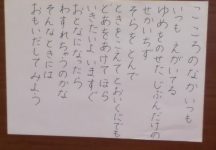 こころのなか いつも
いつも えがいてる
ゆめをのせた じぶんだけの
せかいちず
そらをとんで
ときをこえて とおいくにでも
どあをあけてほら
いきたいよ いますぐ
おとなになったら
わすれちゃうのかな
そんなときには
おもいだしてみよう